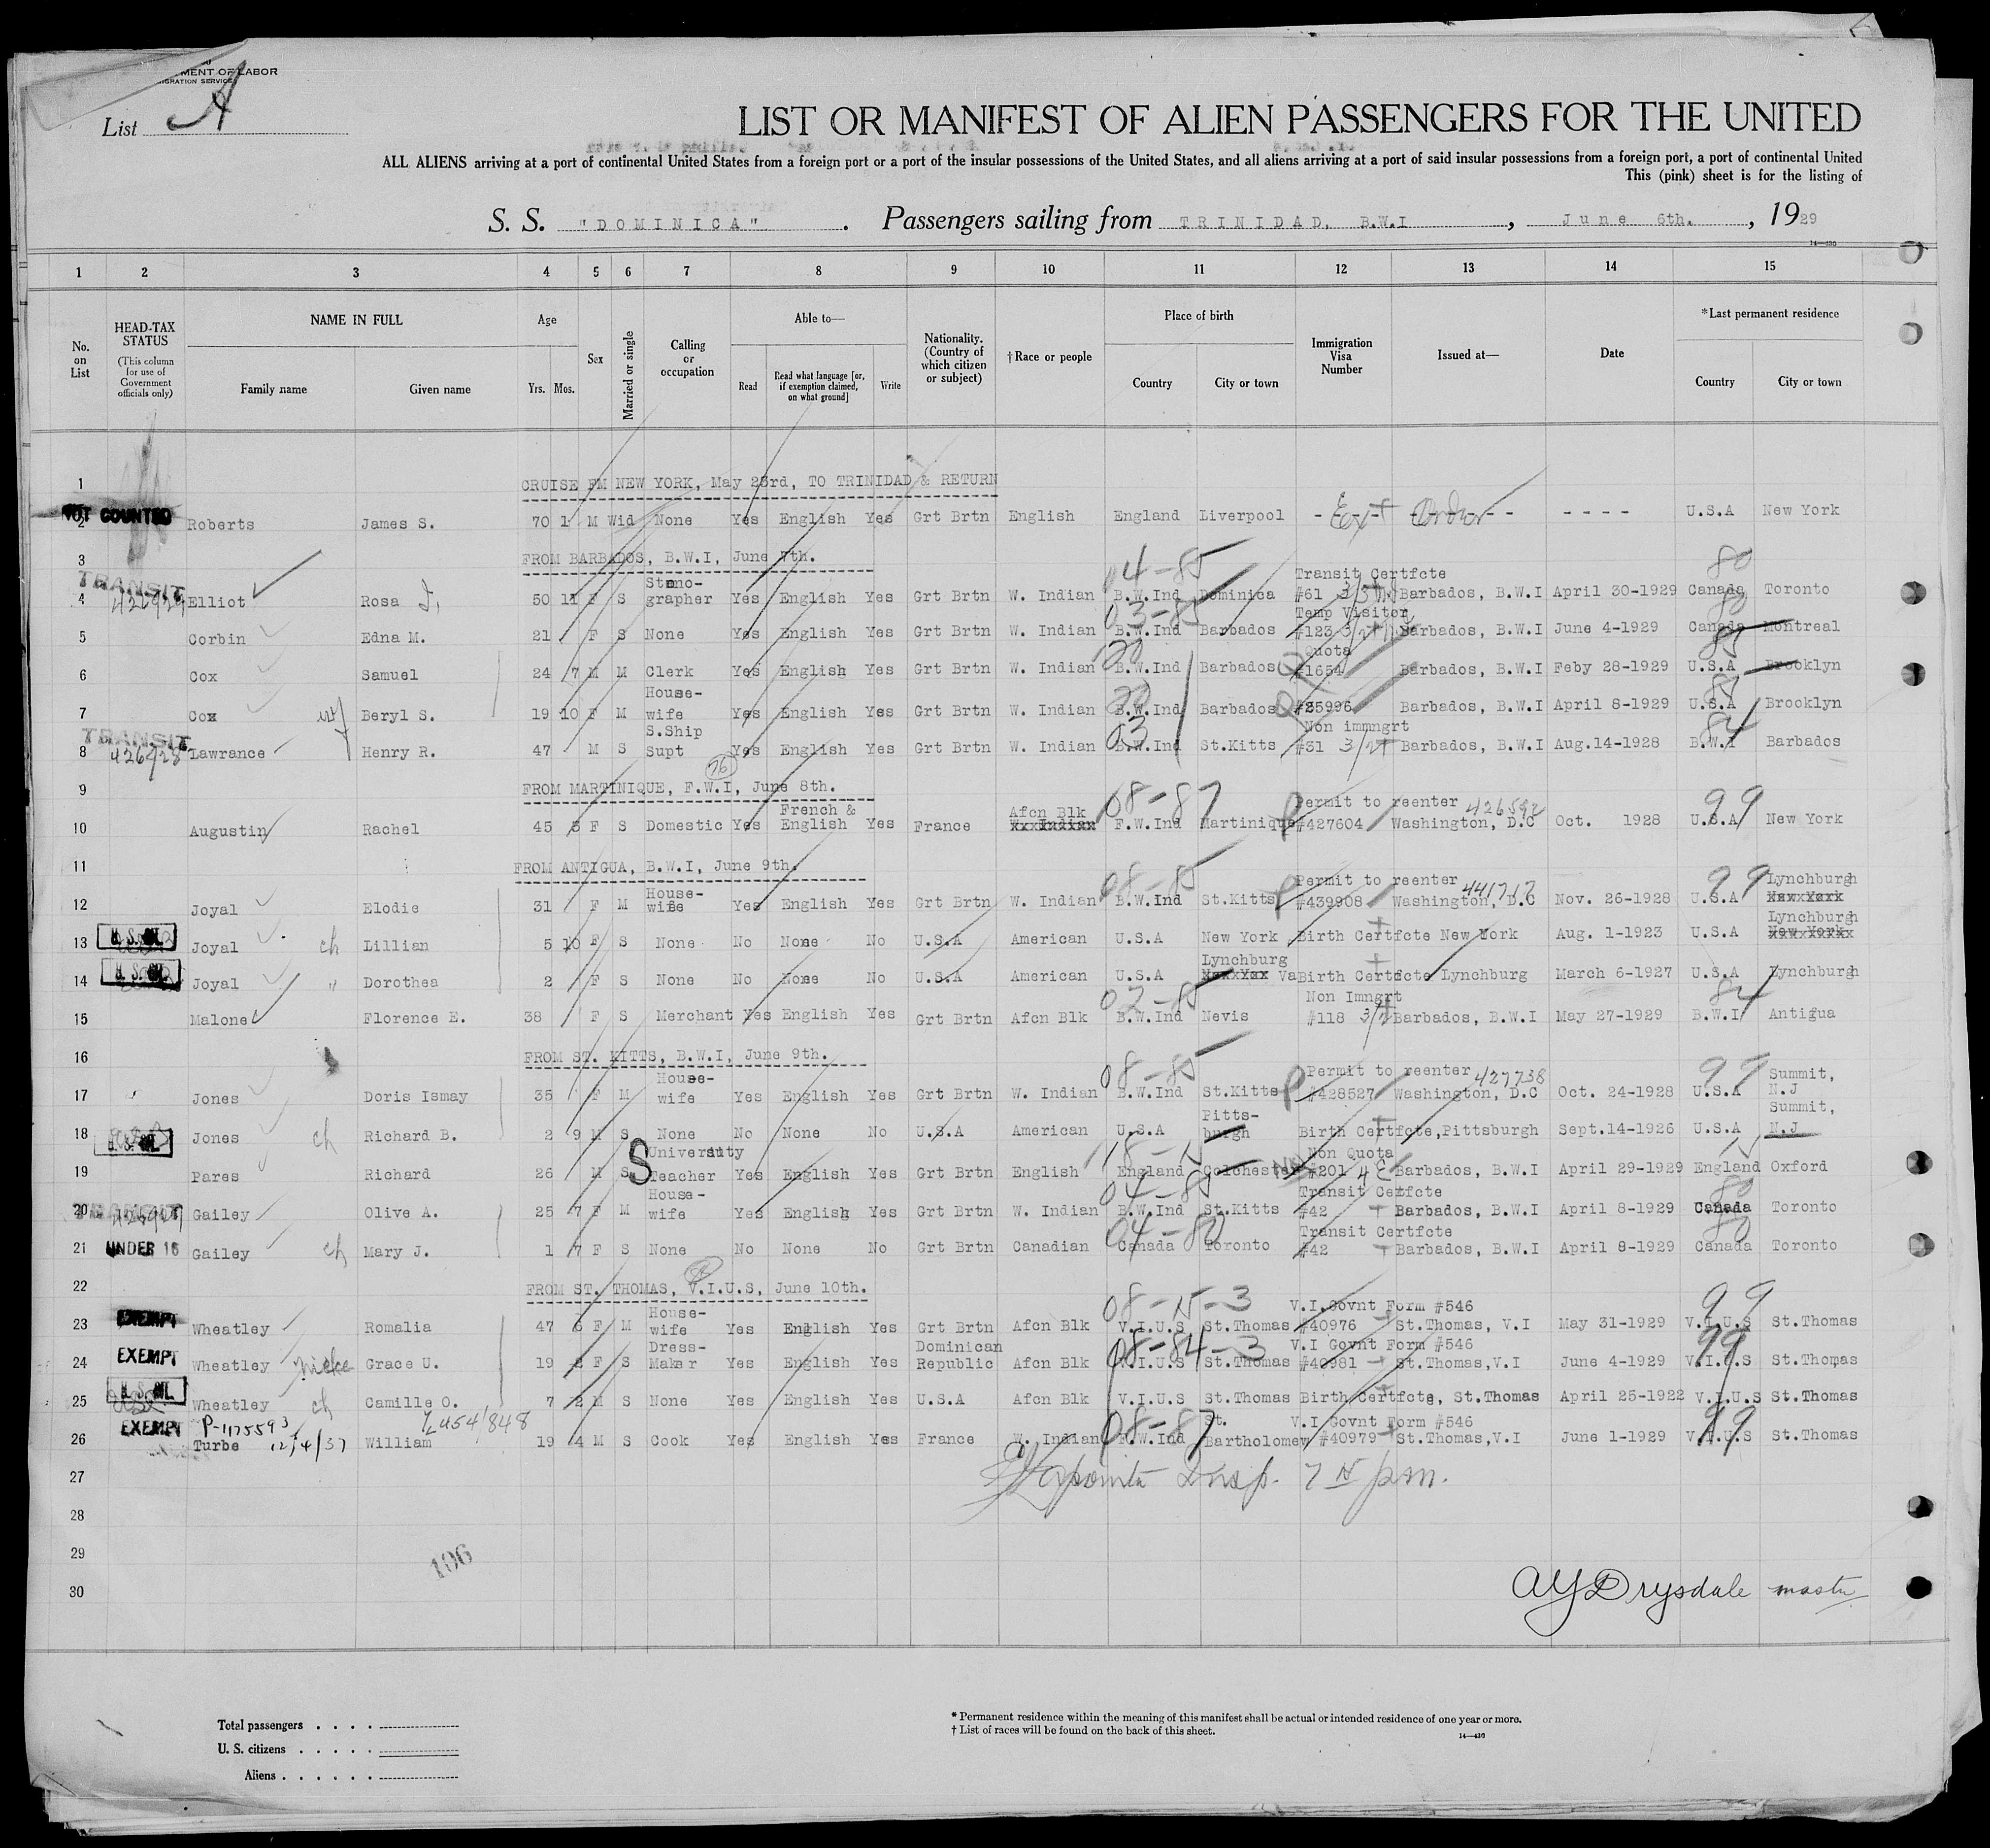 MENT OF LABOR
IGRATION SERVICE
List A
LIST OR MANIFEST OF ALIEN PASSENGERS FOR THE UNITED
ALL ALIENS arriving at a port of continental United States from a foreign port or a port of the insular possessions of the United States, and all aliens arriving at a port of said insular possessions from a foreign port, a port of continental United
This (pink) sheet is for the listing of
S. S. "DOMINICA" . Passengers sailing from TRINIDAD, B.W.I , June 6th. , 1929
14—430
1 2 3 4 5 6 7 8 9 10 11 12 13 14 15
No. on List
HEAD-TAX STATUS (This column for use of Government officials only)
NAME IN FULL
Family name Given name
Age
Yrs. Mos.
Sex
Married or single
Calling or occupation
Able to—
Read Read what language [or, if exemption claimed, on what ground] Write
Nationality. (Country of which citizen or subject)
†Race or people
Place of birth
Country City or town
Immigration Visa Number
Issued at—
Date
*Last permanent residence
Country City or town
1 CRUISE FM NEW YORK, May 23rd, TO TRINIDAD & RETURN
NOT COUNTED
2 Roberts James S. 70 1 M Wid None Yes English Yes Grt Brtn English England Liverpool - Ext Order - - - - - - U.S.A New York
3 FROM BARBADOS, B.W.I, June 7th.
TRANSIT Steno- 04-85 Transit Certfcte 80
4 Elliot Rosa J. 50 11 F S grapher Yes English Yes Grt Brtn W. Indian B.W.Ind Dominica #61 Barbados, B.W.I April 30-1929 Canada Toronto
03-85 Temp Visitor 80
5 Corbin Edna M. 21 F S None Yes English Yes Grt Brtn W. Indian B.W.Ind Barbados #123 Barbados, B.W.I June 4-1929 Canada Montreal
Quota
6 Cox Samuel 24 7 M M Clerk Yes English Yes Grt Brtn W. Indian B.W.Ind Barbados #1654 Barbados, B.W.I Feby 28-1929 U.S.A Brooklyn
House-
7 Cox wf Beryl S. 19 10 F M wife Yes English Yes Grt Brtn W. Indian B.W.Ind Barbados #25996 Barbados, B.W.I April 8-1929 U.S.A Brooklyn
TRANSIT S.Ship 03 Non immngrt 84
8 426928 Lawrance Henry R. 47 M S Supt Yes English Yes Grt Brtn W. Indian B.W.Ind St.Kitts #31 3/2 Barbados, B.W.I Aug.14-1928 B.W.I Barbados
(76)
9 FROM MARTINIQUE, F.W.I, June 8th.
French & Afcn Blk 08-87 Permit to reenter 426592 99
10 Augustin Rachel 45 5 F S Domestic Yes English Yes France F.W.Ind Martinique #427604 Washington, D.C Oct. 1928 U.S.A New York
11 FROM ANTIGUA, B.W.I, June 9th.
House- 08-85 Permit to reenter 441717 99 Lynchburgh
12 Joyal Elodie 31 F M wife Yes English Yes Grt Brtn W. Indian B.W.Ind St.Kitts #439908 Washington, D.C Nov. 26-1928 U.S.A New York
Lynchburgh
13 Joyal ch Lillian 5 10 F S None No None No U.S.A American U.S.A New York Birth Certfcte New York Aug. 1-1923 U.S.A New York
Lynchburg
14 Joyal " Dorothea 2 F S None No None No U.S.A American U.S.A Va Birth Certfcte Lynchburg March 6-1927 U.S.A Lynchburgh
Non Imngrt 84
15 Malone Florence E. 38 F S Merchant Yes English Yes Grt Brtn Afcn Blk B.W.Ind Nevis #118 3/2 Barbados, B.W.I May 27-1929 B.W.I Antigua
16 FROM ST. KITTS, B.W.I, June 9th.
House- 08-85 Permit to reenter 427738 99 Summit,
17 Jones Doris Ismay 35 F M wife Yes English Yes Grt Brtn W. Indian B.W.Ind St.Kitts #428527 Washington, D.C Oct. 24-1928 U.S.A N.J
Pitts- Summit,
18 Jones ch Richard B. 2 9 M S None No None No U.S.A American U.S.A burgh Birth Certfcte,Pittsburgh Sept.14-1926 U.S.A N.J
University Non Quota
19 Pares Richard 26 M S Teacher Yes English Yes Grt Brtn English England Colchester #201 Barbados, B.W.I April 29-1929 England Oxford
TRANSIT House- 04-85 Transit Certfcte 80
20 Gailey Olive A. 25 7 F M wife Yes English Yes Grt Brtn W. Indian B.W.Ind St.Kitts #42 Barbados, B.W.I April 8-1929 Canada Toronto
04-80 Transit Certfcte 80
21 UNDER 16 Gailey ch Mary J. 1 7 F S None No None No Grt Brtn Canadian Canada Toronto #42 Barbados, B.W.I April 8-1929 Canada Toronto
22 FROM ST. THOMAS, V.I.U.S, June 10th.
EXEMPT House- V.I.Govnt Form #546 99
23 Wheatley Romalia 47 6 F M wife Yes English Yes Grt Brtn Afcn Blk V.I.U.S St.Thomas #40976 St.Thomas, V.I May 31-1929 V.I.U.S St.Thomas
EXEMPT Dress- Dominican 08-84-3 V.I Govnt Form #546 99
24 Wheatley Niece Grace U. 19 F S Maker Yes English Yes Republic Afcn Blk V.I.U.S St.Thomas #40981 St.Thomas,V.I June 4-1929 V.I.U.S St.Thomas
25 Wheatley ch Camille O. 7 2 M S None Yes English Yes U.S.A Afcn Blk V.I.U.S St.Thomas Birth Certfcte, St.Thomas April 25-1922 V.I.U.S St.Thomas
EXEMPT P-1175593 08-87 St. V.I Govnt Form #546 99
26 Turbe 12/4/37 William 19 4 M S Cook Yes English Yes France W. Indian F.W.Ind Bartholomew #40979 St.Thomas,V.I June 1-1929 V.I.U.S St.Thomas
27 Insp. pm.
28
29
106
30 AY Drysdale master
Total passengers . . . .
U. S. citizens . . . . .
Aliens . . . . . .
* Permanent residence within the meaning of this manifest shall be actual or intended residence of one year or more.
† List of races will be found on the back of this sheet.
14—430